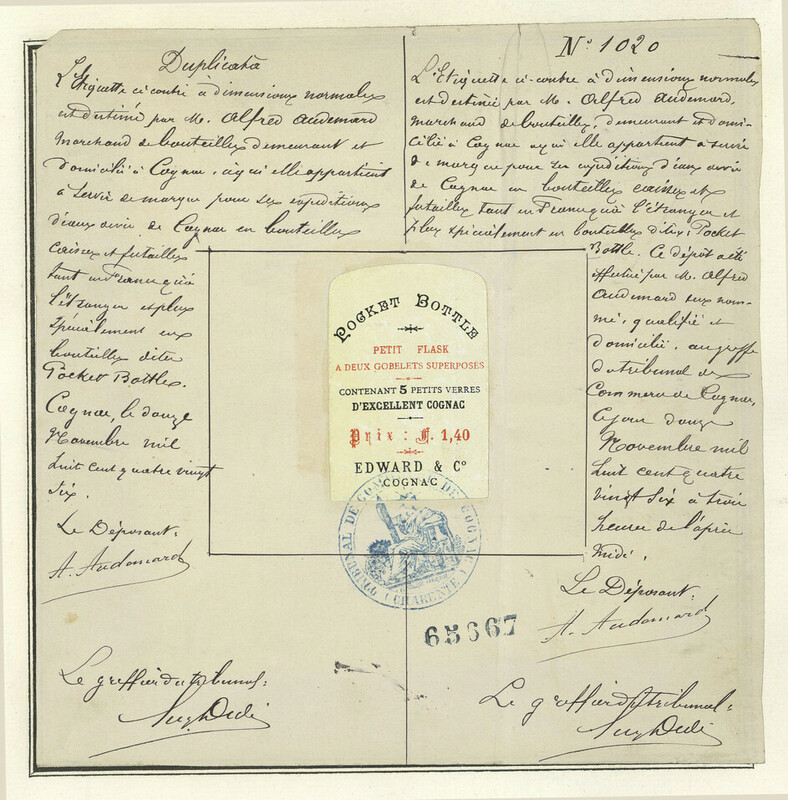 Duplicata
L'Etiquette ci-contre à dimensions normales
est destinée par M. Alfred Audemard
Marchand de bouteilles demeurant et
domicilié à Cognac, à qui elle appartient
à servir de marque pour ses expéditions
d'eaux de vie de Cognac en bouteilles
caisses et futailles
tant en France qu'à
l'étranger et plus
spécialement aux
bouteilles dites
Pocket Bottles.
Cognac, le douze
Novembre mil
huit cent quatre vingt
six.
Le Déposant:
A. Audemard
Le greffier du tribunal:
N° 1020
L'Etiquette ci-contre à dimensions normales
est destinée par M. Alfred Audemard,
marchand de bouteilles, demeurant et domi-
cilié à Cognac à qui elle appartient à servir
de marque pour ses expéditions d'eaux de vie
de Cognac en bouteilles caisses et
futailles tant en France qu'à l'étranger et
plus spécialement en bouteilles dites: Pocket
Bottle. Ce dépôt a été
effectué par M. Alfred
Audemard sus nom-
mé, qualifié et
domicilié, au greffe
du tribunal de
Commerce de Cognac,
ce jour douze
Novembre mil
huit cent quatre
vingt six à trois
heures de l'après
midi.
Le Déposant:
A. Audemard
Le greffier du tribunal:
POCKET BOTTLE
PETIT FLASK
A DEUX GOBELETS SUPERPOSES
CONTENANT 5 PETITS VERRES
D'EXCELLENT COGNAC
Prix : F. 1,40
EDWARD & C°
COGNAC
TRIBUNAL DE COMMERCE DE COGNAC
CHARENTE
65667